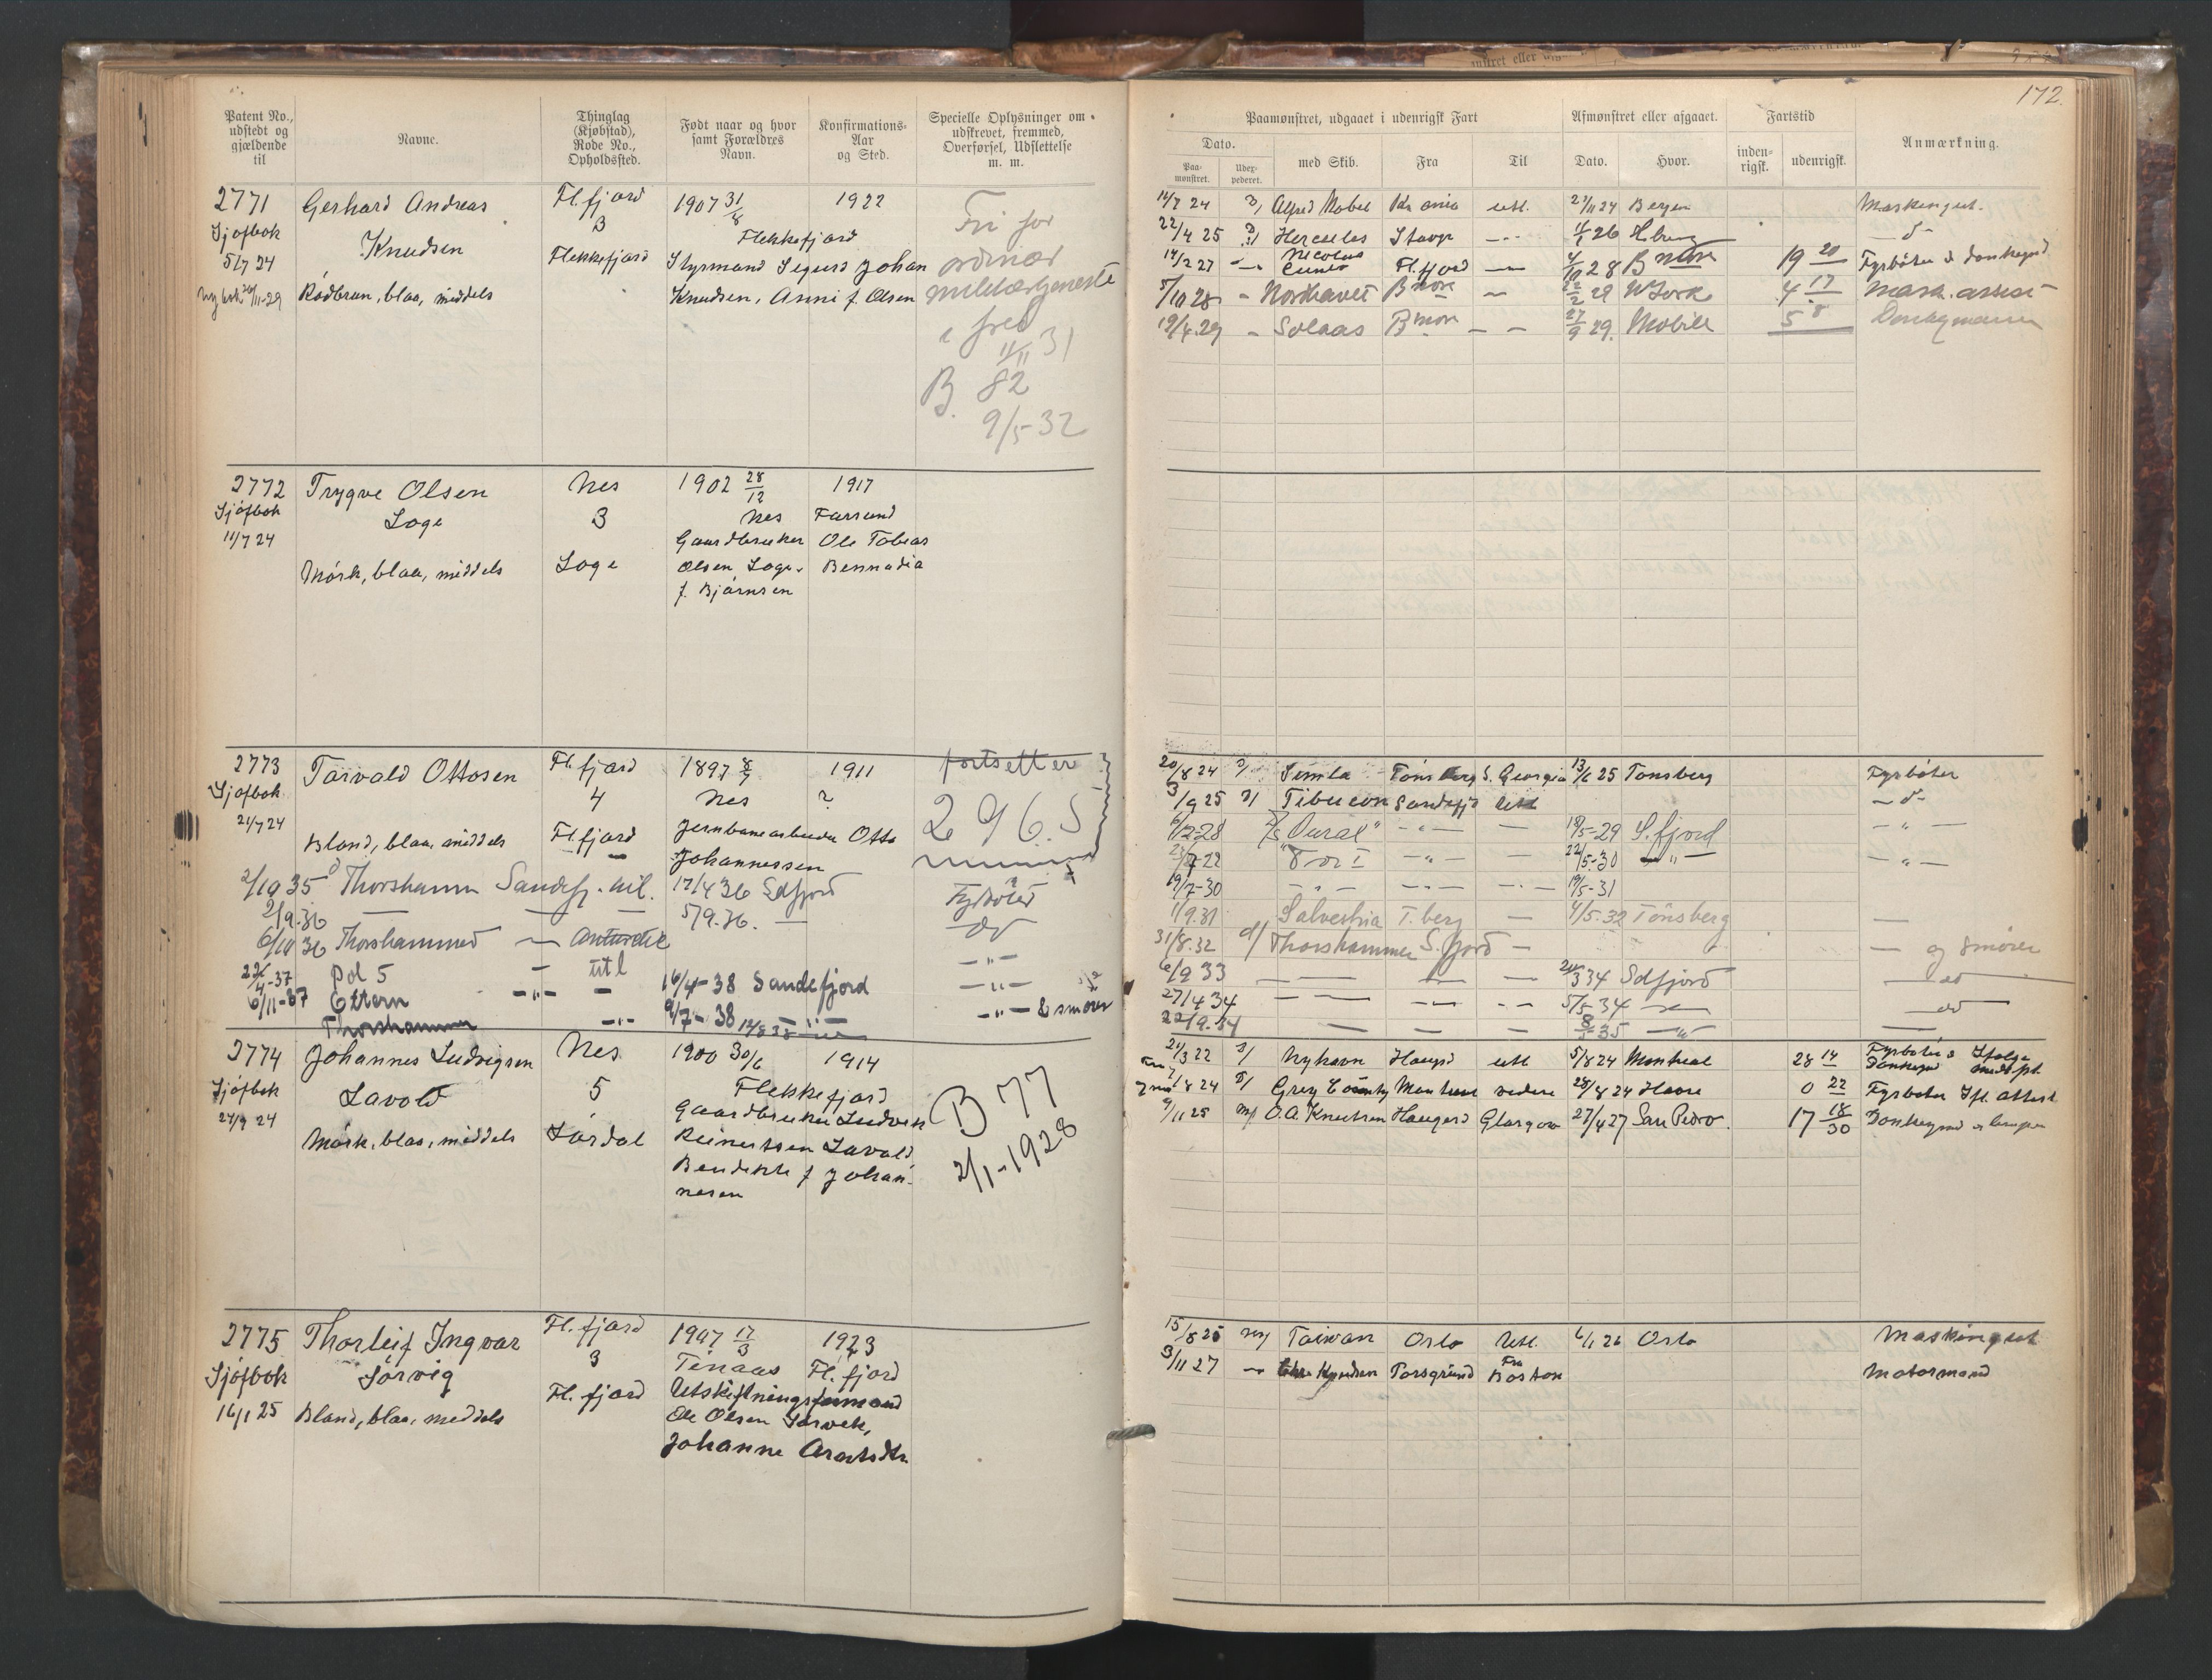 172.
Patent No., udstedt og gjældende til
Navne.
Thinglag (Kjøbstad), Rode No., Opholdssted.
Født naar og hvor samt Forældres Navn.
Konfirmations-Aar og Sted.
Specielle Oplysninger om udskrevet, fremmed, Overførsel, Udslettelse m. m.
Paamønstret, udgaaet i udenrigsk Fart
Dato.
Paamønstret.
med Skib.
Fra
Til
Afmønstret eller afgaaet.
Dato.
Hvor.
Fartstid
indenrigsk.
udenrigsk.
Anmærkning.
2771 Gerhard Andreas Fl.fjord 1907 31/8 1922 Fri for
Sjøfbok Knudsen 3 Flekkefjord ordinær
5/7 24 Flekkefjord Styrmand Sigurd Johan
Rødbrun, blaa, middels Knudsen, Anni f. Olsen militærtjeneste
i fred
11/11 31
B. 82
9/5-32
14/7 24 Alfred Nobel Kr ania utl. 27/11 24 Bergen Maskingut.
22/4 25 Hercules Stavgr 26
14/2 27 Fl.fjord 28 19 20
5/10 28 Nordhavet Bmore 29 N York 4 17 Mask. assist
19/4.29 Solaas Bmore 27/9 29. Mobile 5 8 Donkeymann
2772 Trygve Olsen Nes 1902 28/12 1917
Sjøfbok Loge 3 Nes Farsund
11/7 24 Gaardbruker Ole Tobias
Mørk, blaa, middels Loge Olsen Loge. Bennadia
f. Bjørnsen
2773 Torvald Ottosen Fl.fjord 1897 1911 fortsetter
Sjøfbok 4 Nes ? 2965
21/7 24 Jernbanearbeider Otto
Blond, blaa, middels Fl.fjord Johannessen
2/10 35 Thorshamm Sandefj. utl. 17/4 36 Sdfjord Fyrbøter
2/9.36 — 5/9.36. — do
6/10 36 Thorshammer — Antarctic
-37 Pol 5 — utl 16/4-38 Sandefjord -"-
6/11-37 Ettern -"- — 9/7-38 -"- -"- & smører
Thorshammer -"- 12/8 38
20/8 24 Simla Tønsberg S. Georgia 13/6 25 Tønsberg Fyrbøter
3/9 25 Sandefj Utl -d-
"Oural" -"- — 18/5-29 S.fjord -"-
-"- — 22/5-30 -"- -"-
19/7-30 -"- -"- -"- 19/5-31
1/9.31 Salvestria T.berg — 4/5.32 Tönsberg —
31/8.32 Thorshammer S.fjord — — og smører
6/9 33 — — — 34 Sdfjord do
27/4 34 — — — 5/5-34 — do
22/9.34 — — — 35 -"- —
2774 Johannes Ludvigsen Nes 1900 30/6 1914
Sjøfbok Lavold 5 Flekkefjord B 77
24/9 24 Gaardbruker Ludvik 2/1-1928
Mørk, blaa, middels Lørdal Reinertsen Lavold,
Bendikte f Johan-
nesen
24/3 22 Nyhavn Haugsd utl 5/8 24 Montreal 28 14
8 24 Grey County Montreal videre 28/8 24 Havre 0 22 Fyrbøter Ifl. attest
9/11 25 O.A. Knudsen Haugesd Glasgow 27/4 27 San Pedro. 17 18/30
2775 Thorleif Ingvar Fl.fjord 1907 17/3 1923
Sjøfbok Sørvig 3 Tinaas Fl.fjord
16/1 25 Fl.fjord Utskiftningsformand
Blond, blaa, middels Ole Olsen Sørvik,
Johanne
15/8 25 Taiwan Oslo Utl. 6/1 26 Oslo Maskingut
3/11 27 Knudsen Porsgrund Fra Boston Motormand